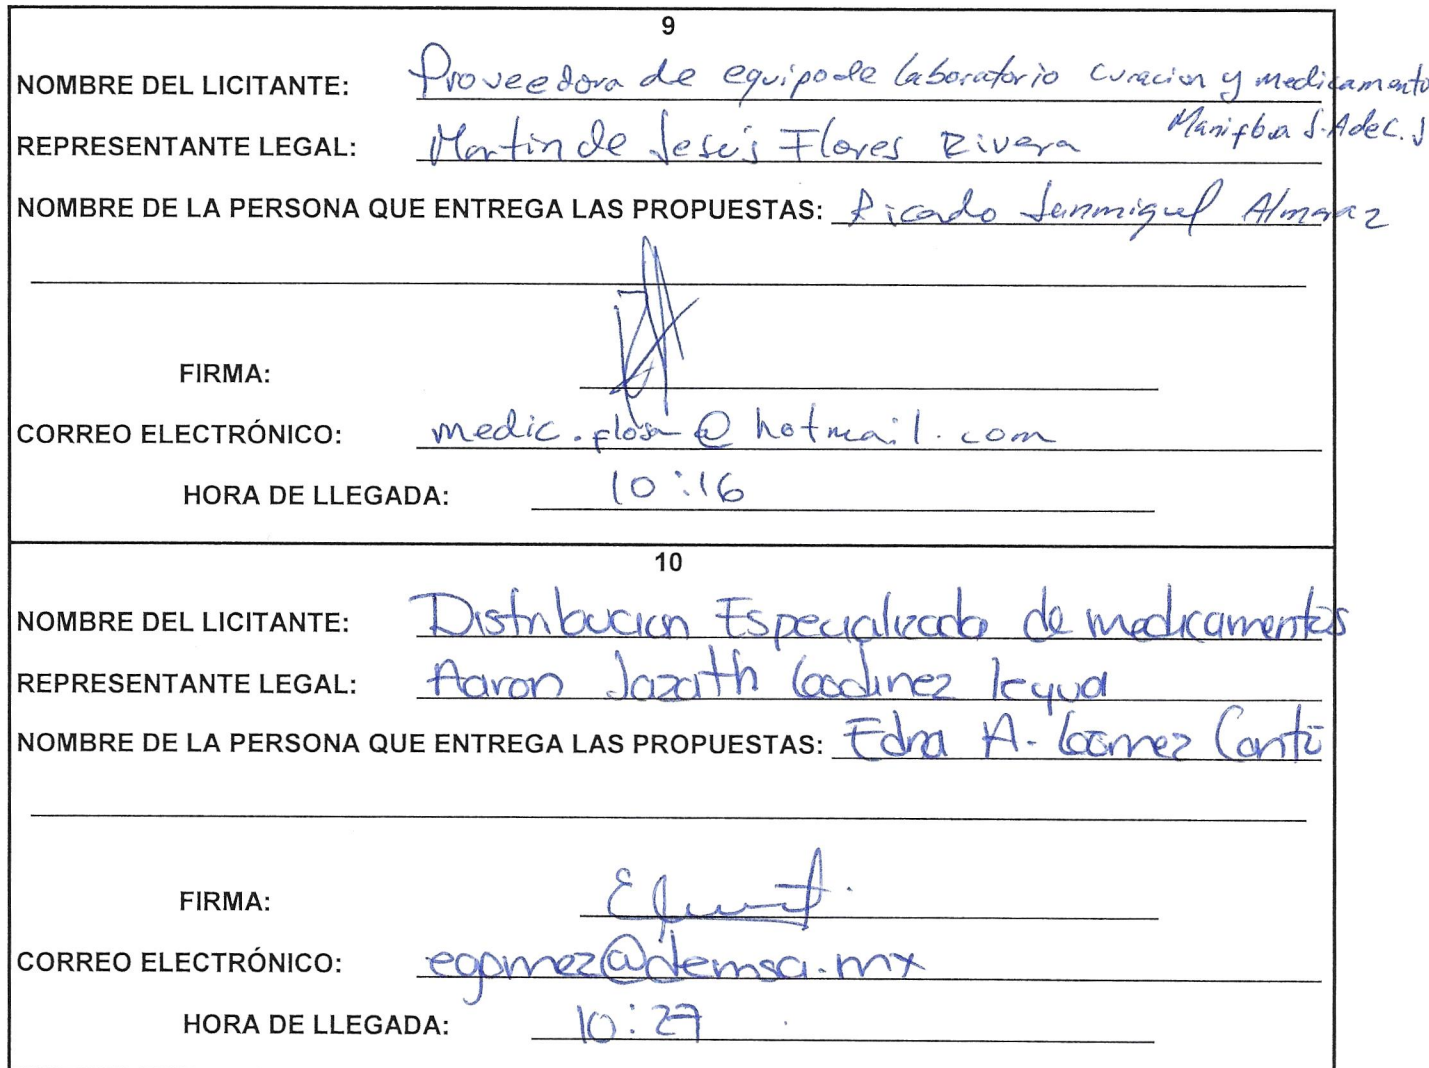 9
NOMBRE DEL LICITANTE: Proveedora de equipo de laboratorio curacion y medicamento
S.AdeC.
REPRESENTANTE LEGAL: Martin de Jesús Flores Rivera
NOMBRE DE LA PERSONA QUE ENTREGA LAS PROPUESTAS: Ricardo Sanmiguel Almaraz
FIRMA:
CORREO ELECTRÓNICO: @hotmail.com
HORA DE LLEGADA: 10:16
10
NOMBRE DEL LICITANTE: Distribucion Especializada de medicamentos
REPRESENTANTE LEGAL: Aaron Jazath Godinez
NOMBRE DE LA PERSONA QUE ENTREGA LAS PROPUESTAS: Edna A. Gomez Cantú
FIRMA:
CORREO ELECTRÓNICO: egomez@demsa.mx
HORA DE LLEGADA: 10:27